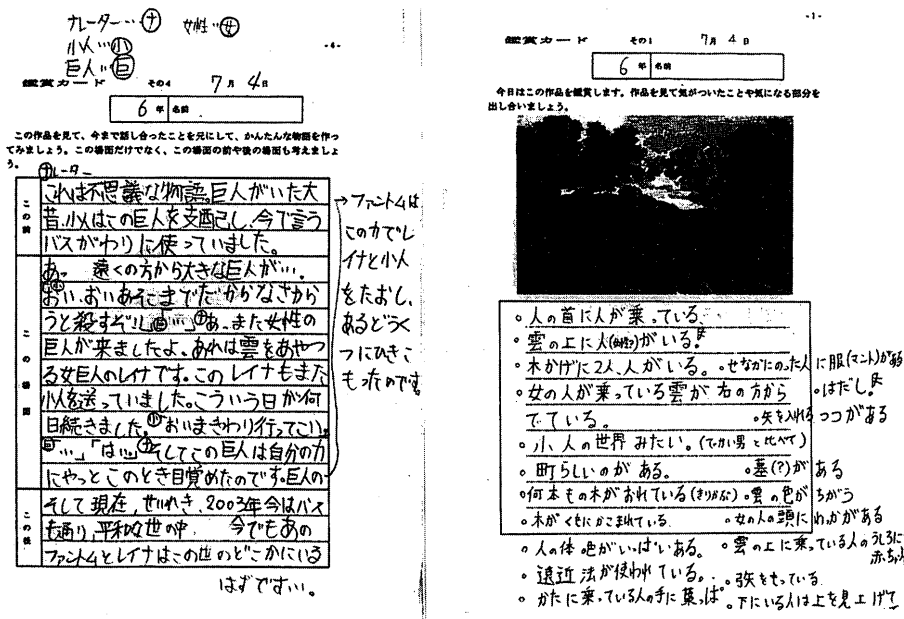 ナレーター…ナ 女性…女
小人…小
巨人…巨
-4-
鑑賞カード その4 7月4日
6年 名前
この作品を見て、今まで話し合ったことを元にして、かんたんな物語を作っ
てみましょう。この場面だけでなく、この場面の前や後の場面も考えましょ
う。
ナレーター
この前
これは不思議な物語。巨人がいた大
昔、小人はこの巨人を支配し、今で言う
バスがわりに使っていました。
この場面
あっ 遠くの方から大きな巨人が…。
おい、おいあそこまでだ
うと殺すぞ!」巨「…」ナあ、また女性の
巨人が来ましたよ、あれは雲をあやつ
る女巨人のレイナです。このレイナもまた
小人を送っていました。こういう日が何
日続きました。小「おいまきわり行ってこい。
巨「…」「は…」ナそしてこの巨人は自分の力
にやっとこのとき目覚めたのです。巨人の
この後
そして現在、せいれき、2003年今はバス
も通り、平和な世の中 今でもあの
ファントムとレイナはこの世のどこかにいる
はずです…。
→ファントムは
この力でレ
イナと小人
をたおし、
あるどうく
つにひきこ
もったのです
-1-
鑑賞カード その1 7月4日
6年 名前
今日はこの作品を鑑賞します。作品を見て気がついたことや気になる部分を
出し合いましょう。
。人の首に人が乗っている。
。雲の上に人(女性?)がいる!
。木かげに2人、人がいる。 。せなかにのった人に服(マント)が
。女の人が乗っている雲が右の方から 。はだし!
でている。 。矢を入れるツツがある
。小人の世界みたい。(でかい男と比べて)
。町らしいのがある。 。墓(?)がある
。何本もの木がおれている(きりかぶ) 。雲の色がちがう
。木がくもにかこまれている。 。女の人の頭にわっかがある
。人の体 色がいっぱいある。 。雲の上に乗っている人のうしろに
。遠近法が使われている。 。弓矢をもっている
。かたに乗っている人の手に葉っぱ 。下にいる人は上を見上げて